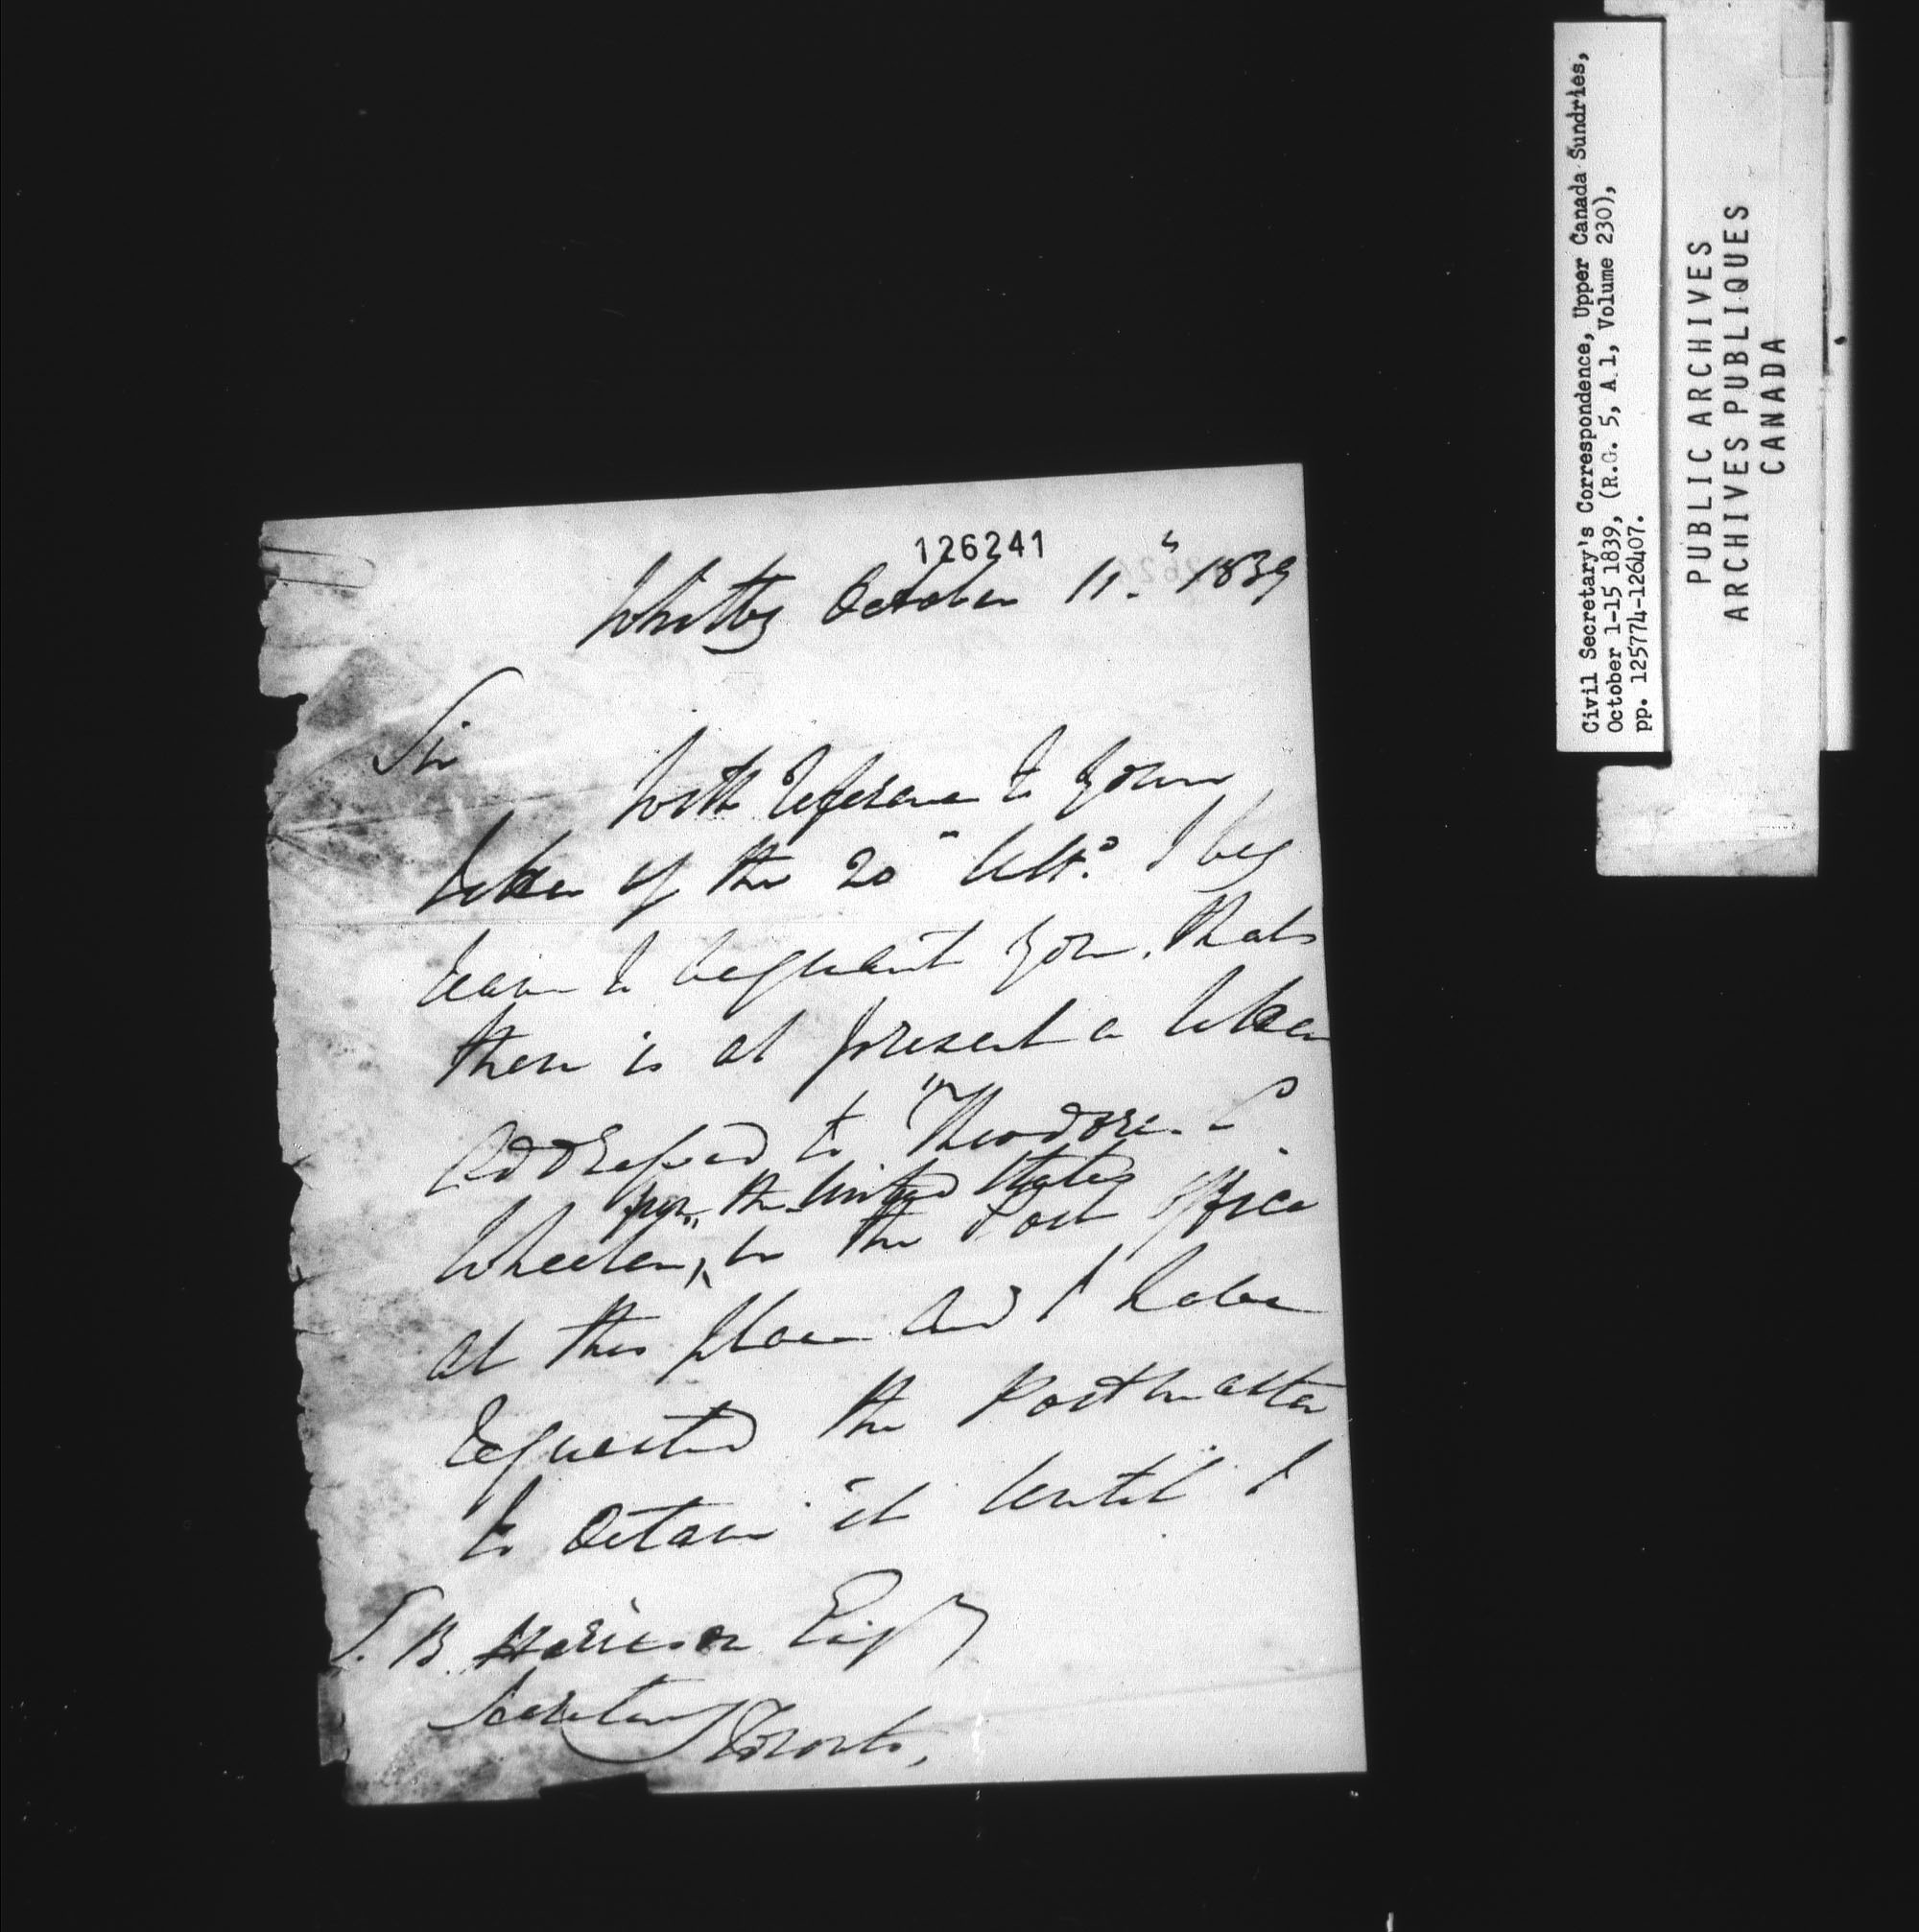 126241
Whitby October 11th 1839
Sir
With reference to your
letter of the 20" Ulto. I beg
leave to acquaint you, that
there is at present a letter
addressed to "Theodore C.
from the United States
Wheeler", in the Post Office
at this place and I have
requested the Postmaster
to detain it until I
S. B. Harrison Esqr
Secretary
Toronto,
Civil Secretary's Correspondence, Upper Canada Sundries,
October 1-15 1839, (R.G. 5, A 1, Volume 230),
pp. 125774-126407.
PUBLIC ARCHIVES
ARCHIVES PUBLIQUES
CANADA